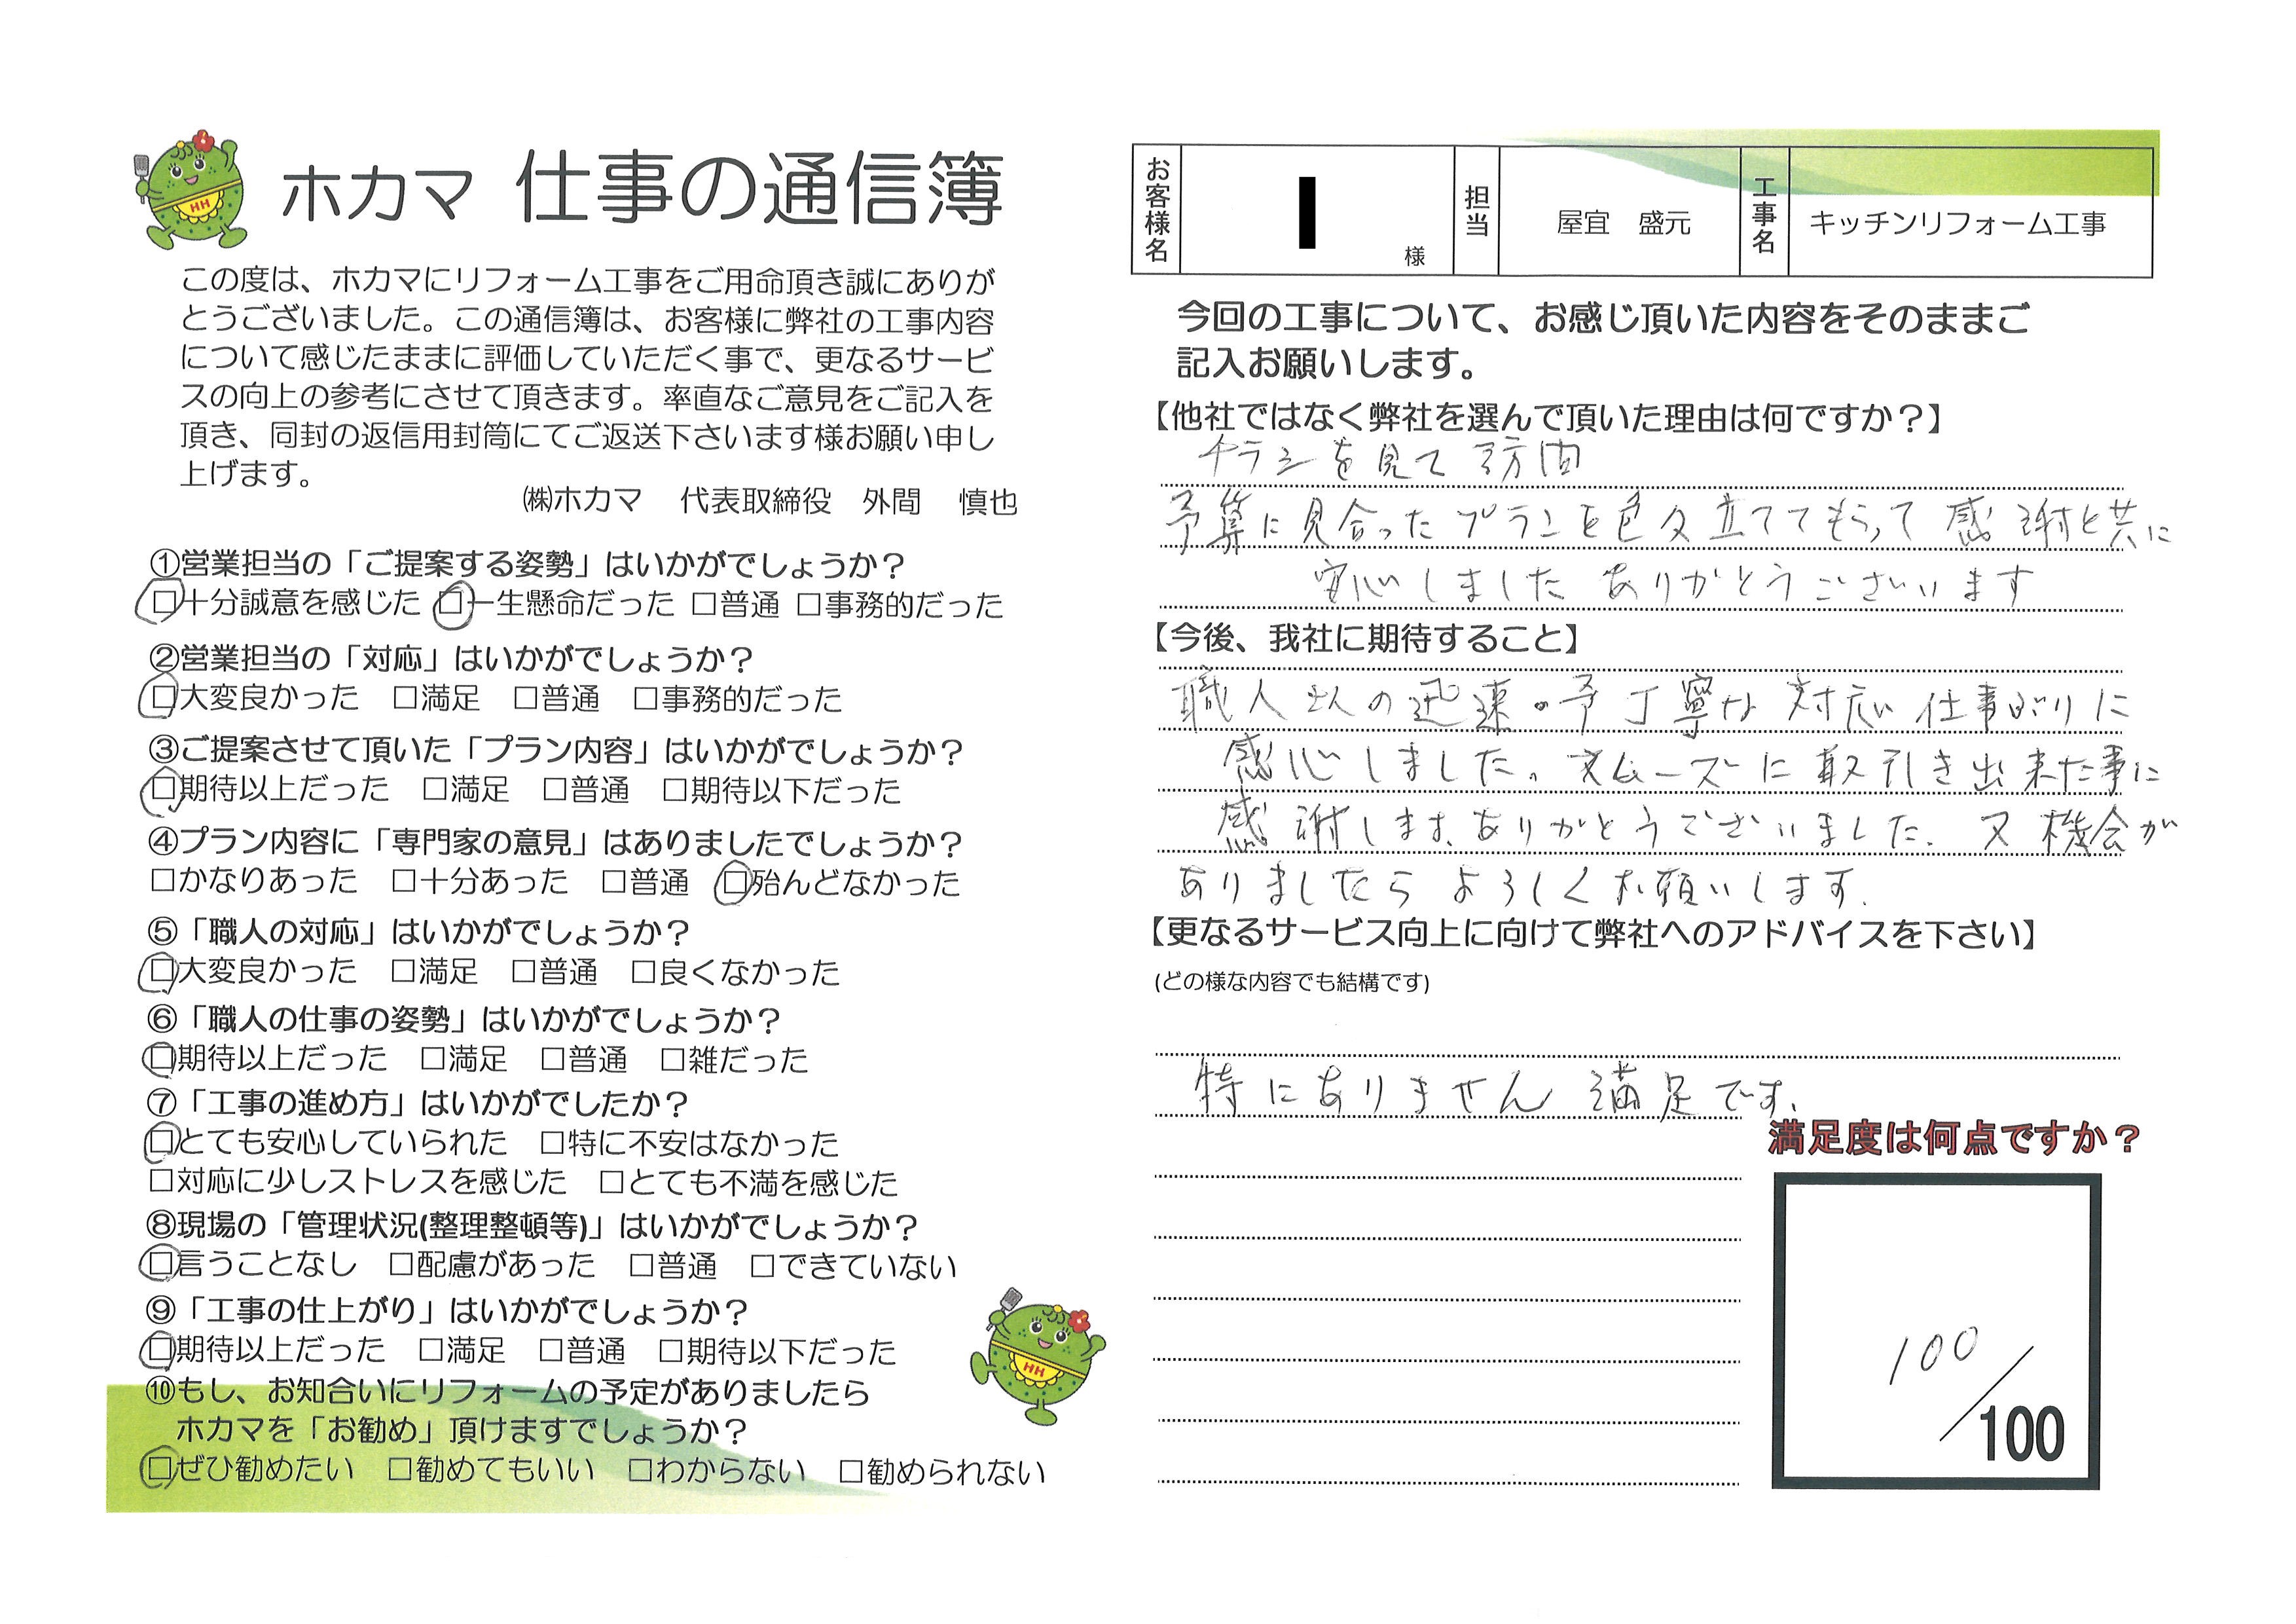 ホカマ 仕事の通信簿
この度は、ホカマにリフォーム工事をご用命頂き誠にありが
とうございました。この通信簿は、お客様に弊社の工事内容
について感じたままに評価していただく事で、更なるサービ
スの向上の参考にさせて頂きます。率直なご意見をご記入を
頂き、同封の返信用封筒にてご返送下さいます様お願い申し
上げます。
㈱ホカマ 代表取締役 外間 慎也
①営業担当の「ご提案する姿勢」はいかがでしょうか？
□十分誠意を感じた □一生懸命だった □普通 □事務的だった
②営業担当の「対応」はいかがでしょうか？
□大変良かった □満足 □普通 □事務的だった
③ご提案させて頂いた「プラン内容」はいかがでしょうか？
□期待以上だった □満足 □普通 □期待以下だった
④プラン内容に「専門家の意見」はありましたでしょうか？
□かなりあった □十分あった □普通 □殆んどなかった
⑤「職人の対応」はいかがでしょうか？
□大変良かった □満足 □普通 □良くなかった
⑥「職人の仕事の姿勢」はいかがでしょうか？
□期待以上だった □満足 □普通 □雑だった
⑦「工事の進め方」はいかがでしたか？
□とても安心していられた □特に不安はなかった
□対応に少しストレスを感じた □とても不満を感じた
⑧現場の「管理状況(整理整頓等)」はいかがでしょうか？
□言うことなし □配慮があった □普通 □できていない
⑨「工事の仕上がり」はいかがでしょうか？
□期待以上だった □満足 □普通 □期待以下だった
⑩もし、お知合いにリフォームの予定がありましたら
ホカマを「お勧め」頂けますでしょうか？
□ぜひ勧めたい □勧めてもいい □わからない □勧められない
HH
HH
お客様名 様 担当 屋宜 盛元 工事名 キッチンリフォーム工事
今回の工事について、お感じ頂いた内容をそのままご
記入お願いします。
【他社ではなく弊社を選んで頂いた理由は何ですか？】
チラシを見て訪問
予算に見合ったプランを色々立ててもらって感謝と共に
安心しました ありがとうございます
【今後、我社に期待すること】
職人の迅速 丁寧な対応 仕事ぶりに
感心しました。スムーズに取引き出来た事に
感謝します、ありがとうございました。又機会が
ありましたらよろしくお願いします。
【更なるサービス向上に向けて弊社へのアドバイスを下さい】
(どの様な内容でも結構です)
特にありません 満足です。
満足度は何点ですか？
100/100